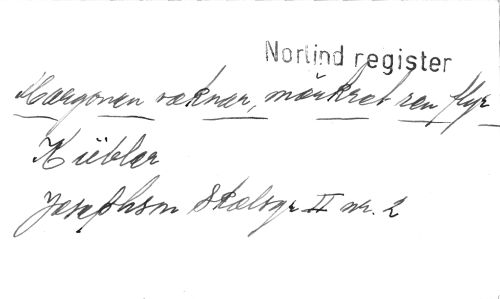 Norlind register
Morgonen vaknar, mörkret ren flyr
Kübler
Josephson Skolsgr II nr. 2